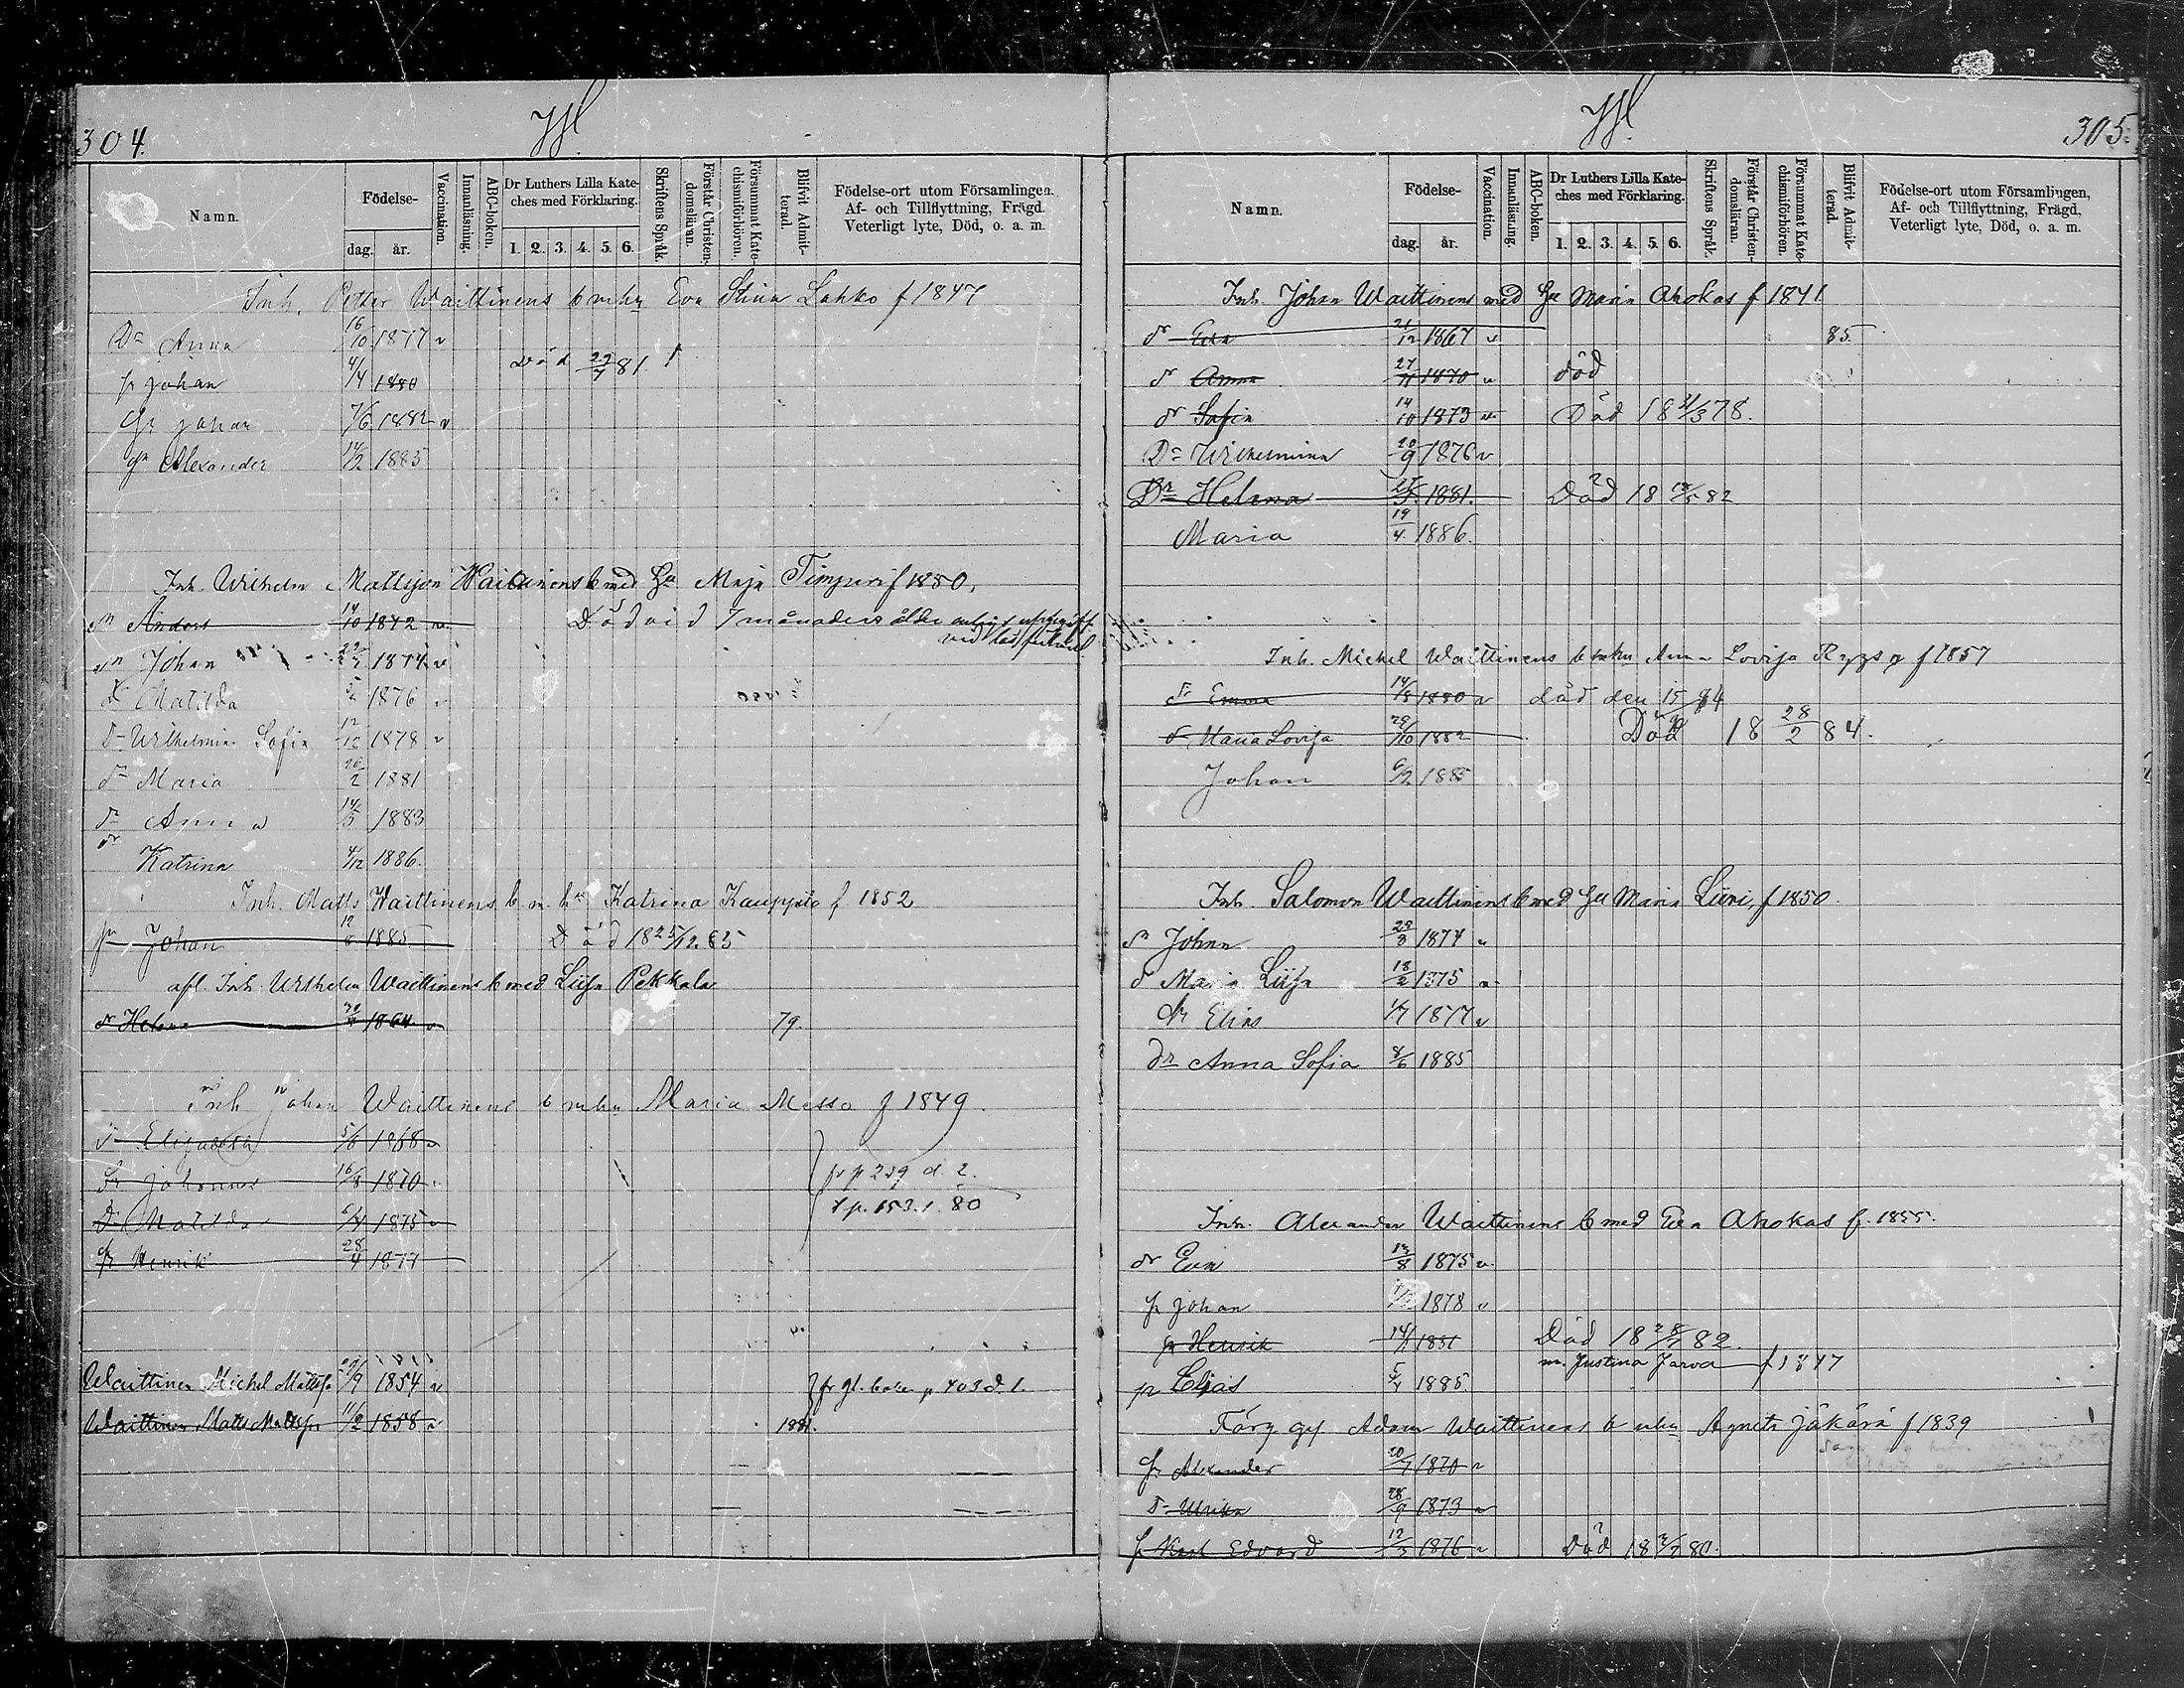 304.
Namn.
Födelse-
dag.
år.
Vaccination.
Innanläsning.
ABC-boken.
Dr Luthers Lilla Kate-
ches med Förklaring.
1. 2. 3. 4. 5. 6.
Skriftens Språk.
Förstår Christen-
domsläran.
Försummat Kate-
chismiförhören.
Blifvit Admit-
terad.
Födelse-ort utom Församlingen.
Af- och Tillflyttning, Frägd.
Veterligt lyte, Död, o. a. m.
Inh. Petter Waittinens b mhu Eva Stina Lahko f 1847
Dr Anna 16/10 1877 v
sr Johan 4/4 1880 Död 22/7 81.
Sr Johan 7/6 1882 v
sr Alexander 14/2 1885
Inh. Wilhelm Mattsson Waittinens b med Hu Maja Timperi f 1850,
sn Anders 14/10 1872 v Död vid 7 månaders ålder
sn Johan 1874 v
dr Matilda 1876 v
dr Wilhelmina Sofia 12/12 1878 v
dr Maria 26/2 1881
dr Anna 14/5 1883
dr Katrina 4/12 1886.
Inh. Matts Waittinens b. m. hu Katrina Kauppila f 1852
sn Johan 12/8 1885 Död 18 25/12 85
afl. Inh. Wilhelm Waittinens b med Liisa Pekkala
dr Helena 1864 v 79.
Inh Johan Waittinens b mhu Maria Messo f 1849.
dr Elisabeth 5/6 1868 v
Sr Johannes 16/8 1870 v fr p 239 d. 2.
Dr Matilda 6/4 1875 v t p. 153. 1. 80
sr Henrik 28/4 1877
Waittinen Michel Mattss 29/9 1854 v fr gl. boken p 403 d. 1.
Waittinen Matts Mattss 11/2 1858 v 1881.
305.
Namn.
Födelse-
dag.
år.
Vaccination.
Innanläsning.
ABC-boken.
Dr Luthers Lilla Kate-
ches med Förklaring.
1. 2. 3. 4. 5. 6.
Skriftens Språk.
Förstår Christen-
domsläran.
Försummat Kate-
chismiförhören.
Blifvit Admit-
terad.
Födelse-ort utom Församlingen,
Af- och Tillflyttning, Frägd,
Veterligt lyte, Död, o. a. m.
Inh. Johan Waittinens med Hu Maria Ahokas f 1841
dr Eva 21/12 1867 v 85.
dr Anna 27/11 1870 v död
dr Sofia 14/10 1873 v Död 18 21/3 78.
Dr Wilhelmina 20/9 1876 v
Dr Helena 1881. Död 18 18/5 82
Maria 19/4. 1886.
Inh. Michel Waittinens b mhu Anna Lovisa f 1857
dr Emma 14/8 1880 v död den 15 84
dr Maria Lovisa 29/10 1882 Död 18 28/2 84.
Johan 6/2 1885
Inh. Salomon Waittinens b med Hu Maria Liini, f 1850.
sn Johan 29/8 1874 v
dr Maria Liisa 18/2 1875 v
sr Elias 1/7 1877 v
dr Anna Sofia 8/6 1885
Inh. Alexander Waittinens b med Eva Ahokas f. 1855.
dr Eva 13/8 1875 v
sr Johan 1878 v
sr Henrik 14/1 1881 Död 18 82.
m. Justina Jarva f 1847
sr Elias 5/4 1885.
Färg gs Adam Waittinens b mhu Agneta Jäkärä f 1839
sr Alexander 20/7 1870 v
dr Ulrika 28/9 1873 v
sr Karl Edvard 12/3 1876 v Död 18 80.